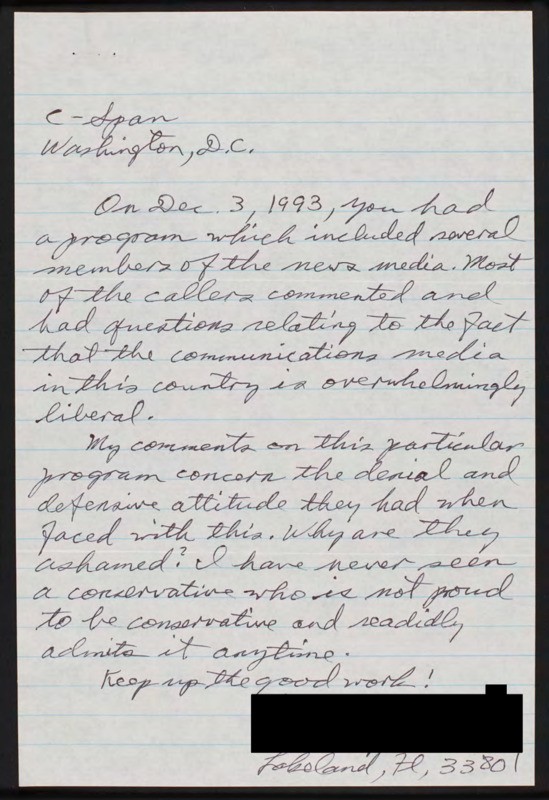 C-Span
Washington, D.C.
On Dec. 3, 1993, you had
a program which included several
members of the news media. Most
of the callers commented and
had questions relating to the fact
that the communications media
in this country is overwhelmingly
liberal.
My comments on this particular
program concern the denial and
defensive attitude they had when
faced with this. Why are they
ashamed? I have never seen
a conservative who is not poud
to be conservative and readidly
admits it anytime.
Keep up the good work!
Lakeland, Fl, 33801